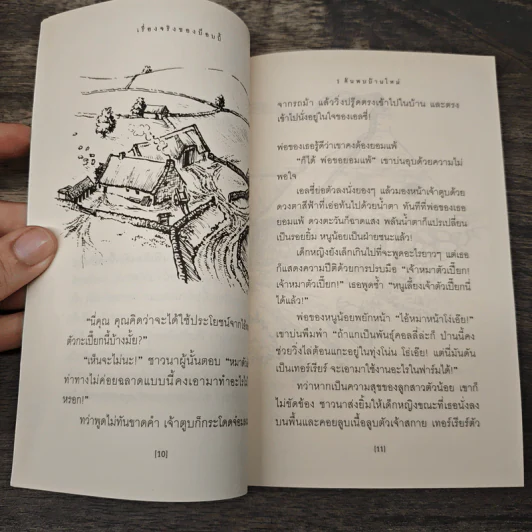 เรื่องจริงของบ๊อบบี้
"นี่คุณ คุณคิดว่าจะได้ใช้ประโยชน์จากไอ้
ตัวกะเปี๊ยกนี่บ้างมั้ย?"
"เห็นจะไม่นะ!" ชาวนาผู้นั้นตอบ "หมาตัว
ท่าทางไม่ค่อยฉลาดแบบนี้คงเอามาทำอะไรไม่
หรอก!"
ทว่าพูดไม่ทันขาดคำ เจ้าตูบก็กระโดดจ๋อม
[10]
1 ค้นพบบ้านใหม่
จากรถม้า แล้ววิ่งปรู๊ดตรงเข้าไปในบ้าน และตรง
เข้าไปนั่งอยู่ในใจของเอลซี่!
พ่อของเธอรู้ดีว่าเขาคงต้องยอมแพ้
"ก็ได้ พ่อขอยอมแพ้" เขาบ่นอุบด้วยความไม่
พอใจ
เอลซี่ย่อตัวลงนั่งยองๆ แล้วมองหน้าเจ้าตูบด้วย
ดวงตาสีฟ้าที่เอ่อท้นไปด้วยน้ำตา ทันทีที่พ่อของเธอ
ยอมแพ้ ดวงตะวันก็ฉาดแสง พลันน้ำตาก็แปรเปลี่ยน
เป็นรอยยิ้ม หนูน้อยเป็นฝ่ายชนะแล้ว!
เด็กหญิงยังเล็กเกินไปที่จะพูดอะไรยาวๆ แต่เธอ
ก็แสดงความปีติด้วยการปรบมือ "เจ้าหมาตัวเปี๊ยก!
เจ้าหมาตัวเปี๊ยก!" เธอพูดซ้ำ "หนูเลี้ยงเจ้าตัวเปี๊ยกนี่
ได้แล้ว!"
พ่อของหนูน้อยพยักหน้า "ไอ้หมาหน้าโง่เอ๊ย!"
เขาบ่นพึมพำ "ถ้าแกเป็นพันธุ์คอลลี่ล่ะก็ ป่านนี้คง
ช่วยวิ่งไล่ต้อนแกะอยู่ในทุ่งโน่น โธ่เอ๊ย! แต่นี่มันดัน
เป็นเทอร์เรียร์ จะเอามาใช้งานอะไรในฟาร์มได้!"
ทว่าหากเป็นความสุขของลูกสาวตัวน้อย เขาก็
ไม่ขัดข้อง ชาวนาส่งยิ้มให้เด็กหญิงขณะที่เธอนั่งลง
บนพื้นและคอยลูบเนื้อลูบตัวเจ้าสกาย เทอร์เรียร์ตัว
[11]